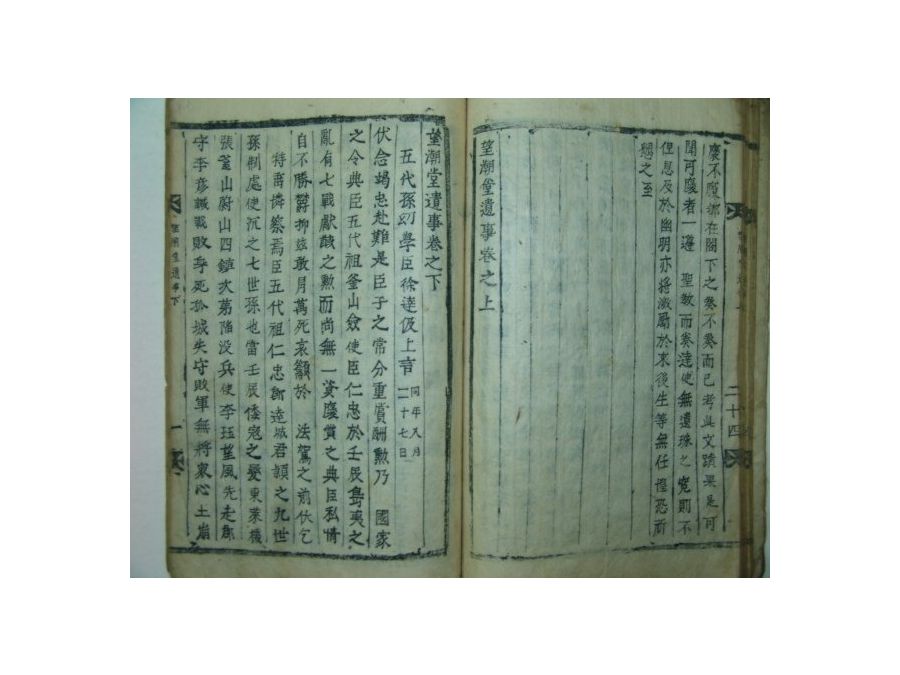 褒不褒都在閤下之奏不奏而已考其文蹟果是可
聞可褒者一遵 聖教而奏達使無遺珠之寃則不
但恩及於幽明亦將激厲於來後生等無任惶恐祈
懇之至
望潮堂遺事卷之上
二十四
望潮堂遺事卷之下
五代孫幼學臣徐達伋上言 同年八月二十七日
伏念竭忠赴難是臣子之常分重賞酬勲乃 國家
之令典臣五代祖釜山僉使臣仁忠於壬辰島夷之
亂有七戰獻馘之勲而尚無一㝎褒賞之典臣私情
自不勝欝抑玆敢冐萬死哀籲於 法駕之前伏乞
特垂憐察焉臣五代祖仁忠卽達城君頴之九世
孫制處使沉之七世孫也當壬辰倭寇之變東萊機
張釜山蔚山四鎮次苐陷没兵使李珏望風先走郡
守李彦諴戰敗乎死孤城失守敗軍無將衆心土崩
望潮堂遺事下
一